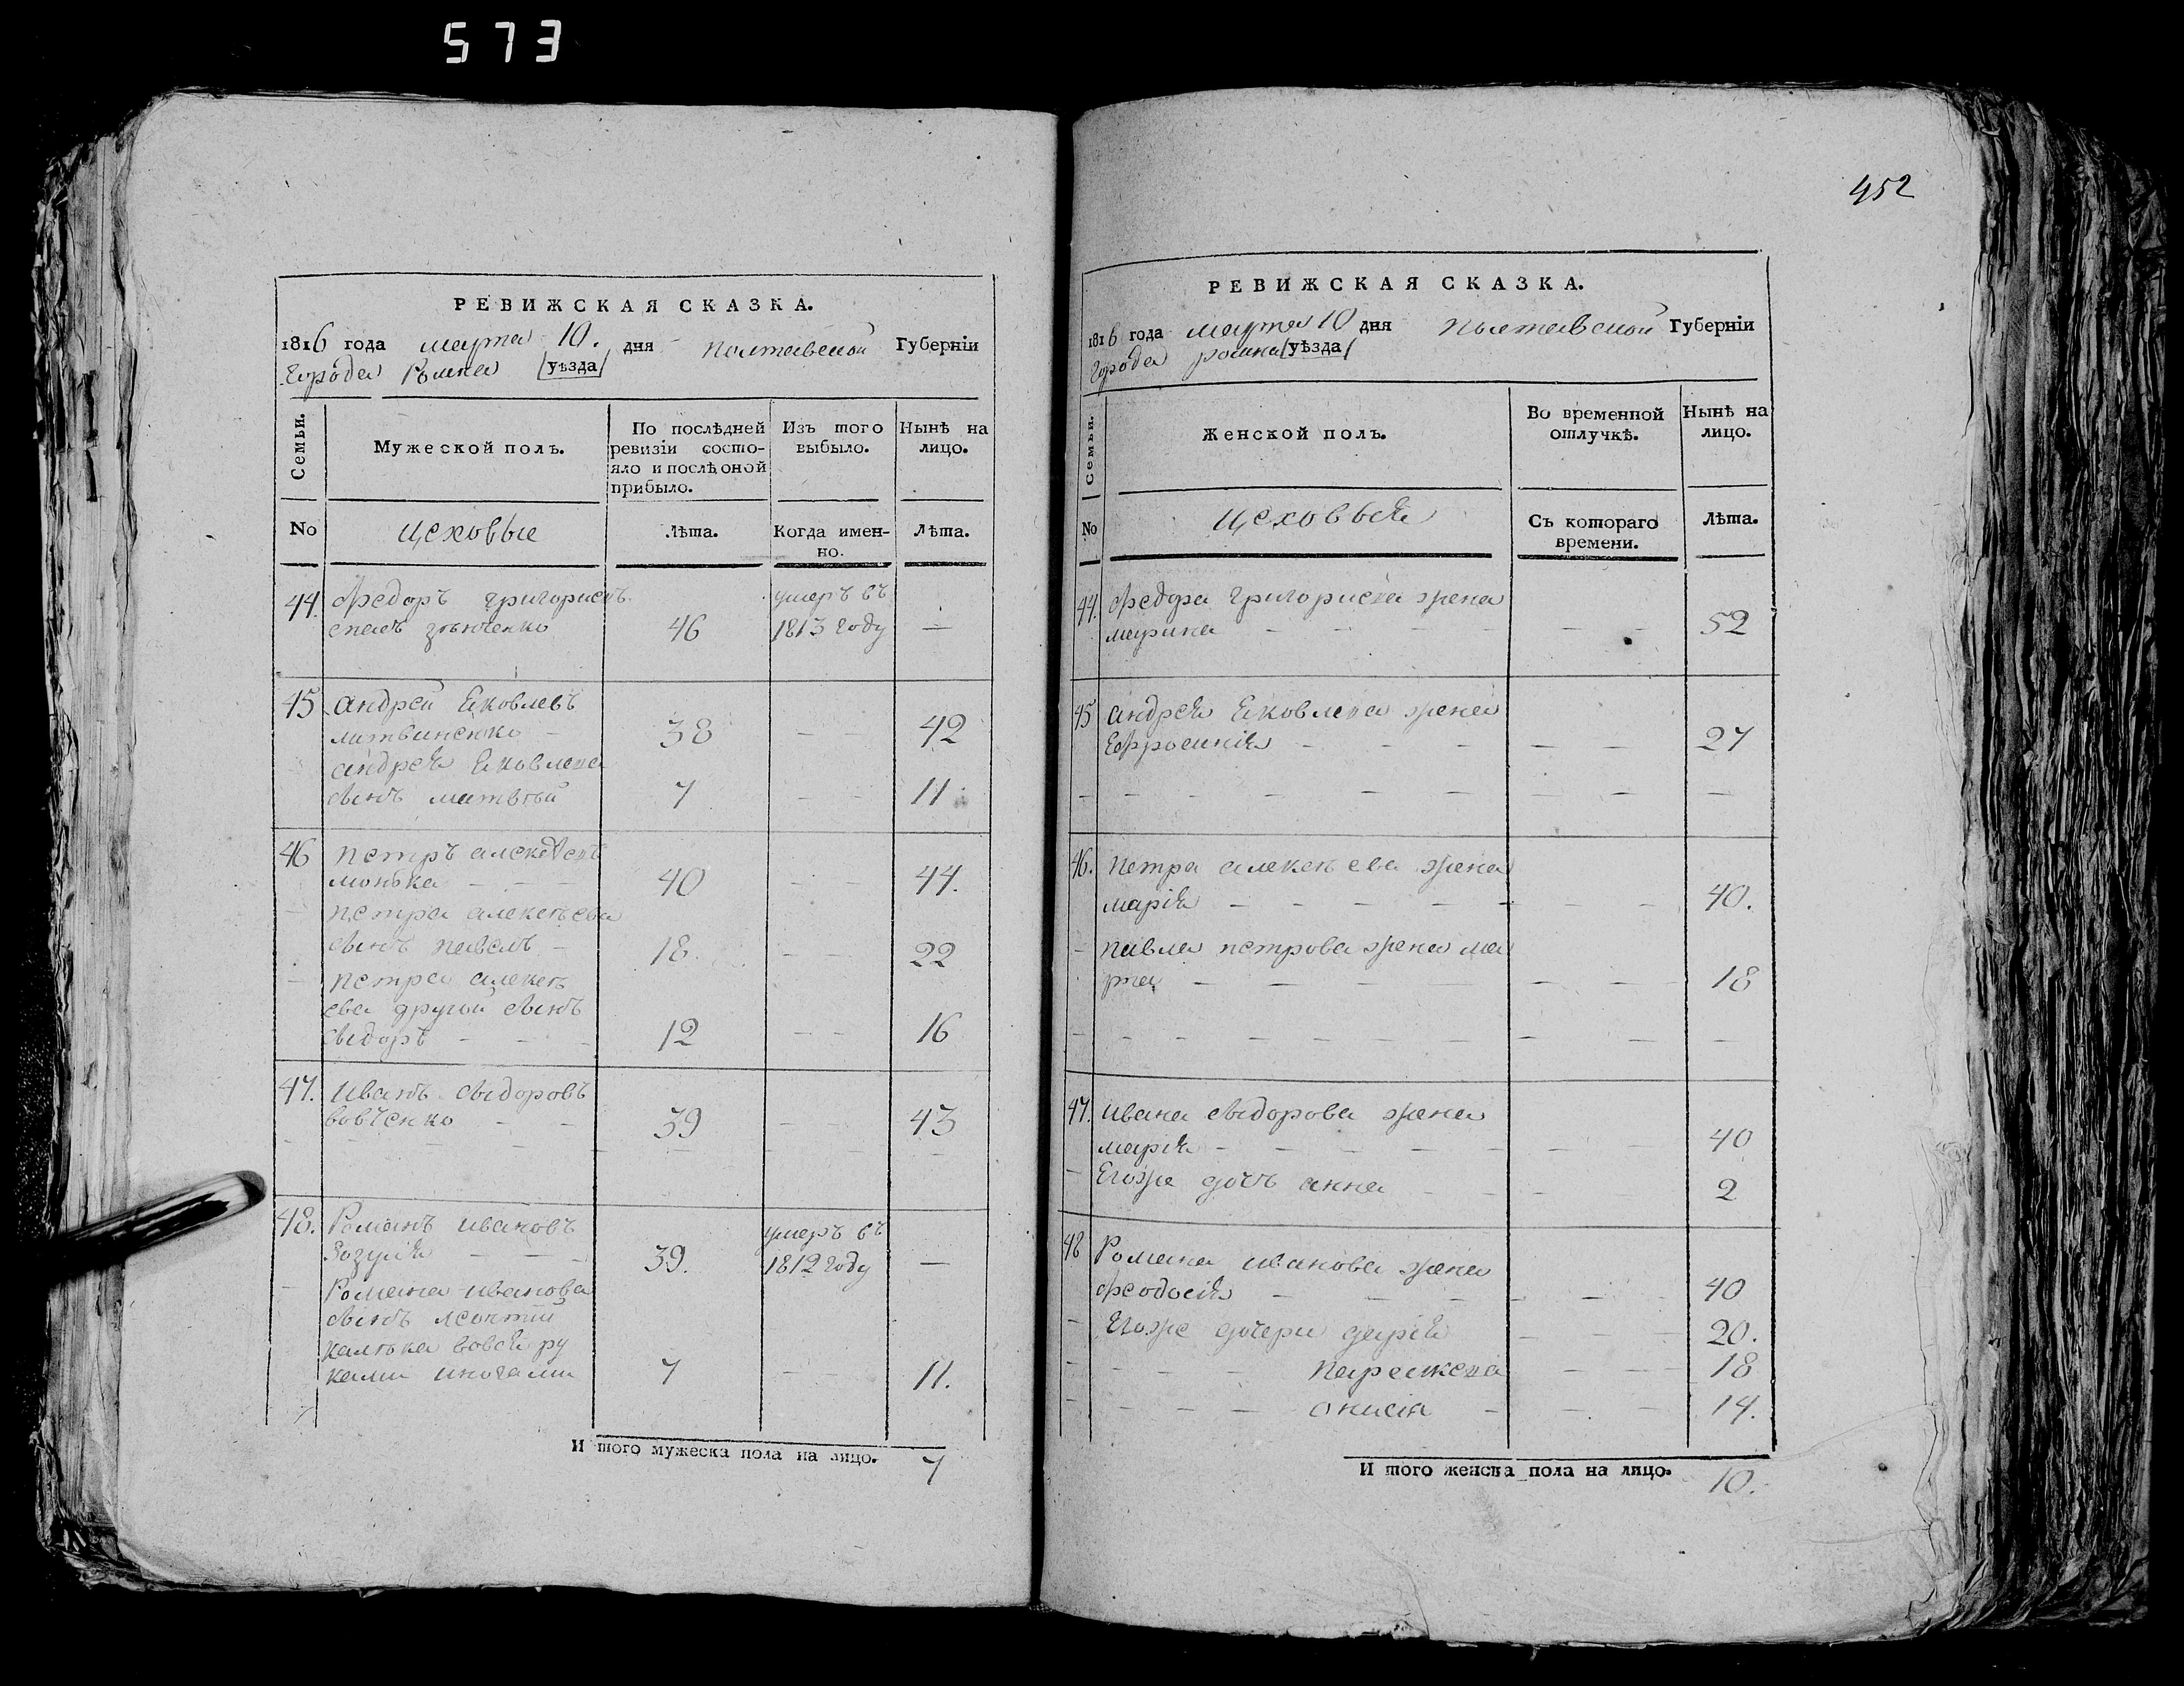 573
РЕВИЖСКАЯ СКАЗКА.
1816 года марта 10. дня Полтавской Губерніи
города Ромна уѣзда
Семьи.
Мужеской полъ.
По послѣдней ревизіи состо-
яло и послѣ оной
прибыло.
Изъ того
выбыло.
Нынѣ на
лицо.
No
цеховые
Лѣта.
Когда имен-
но.
Лѣта.
44. Федоръ григориевъ умеръ въ
46 1813 году —
45 андрей Яковлевъ
литвиненко - 38 - - 42
андрея Яковлева
сынъ матвѣй 7 - - 11.
46 петръ алексѣевъ
монька - - - 40 - - 44.
- петра алексѣева
сынъ павелъ - 18. - - 22
- петра алексѣ
ева другой сынъ
сыдоръ - - - 12 - - 16
47. иванъ сыдоровъ
вовченко - - 39 - - 43
48. Романъ ивановъ умеръ въ
Зозуля - - - 39. 1812 году —
- Романа иванова
сынъ леонтий
калѣка вовся ру
ками иногами 7 - - 11.
И того мужеска пола на лицо. 7
452
РЕВИЖСКАЯ СКАЗКА.
1816 года марта 10 дня Полтавской Губерніи
города ромна уѣзда
Семьи.
Женской полъ.
Во временной
отлучкѣ.
Нынѣ на
лицо.
No
цеховыя
Съ котораго
времени.
Лѣта.
44. Федора григориева жена
марина - - - - - - 52
45 андрея Яковлева жена
Ефросинія - - - - - 27
- - - - - - - - - -
46. петра алексѣева жена
марія - - - - - - - 40.
- павла петрова жена ма
рта - - - - - - - 18
- - - - - - - - - -
47. ивана сыдорова жена
марія - - - - - - - 40
- Егоже дочь анна - - - - 2
48 Романа иванова жена
феодосія - - - - - - 40
- Егоже дочери дарія - - - 20.
- - - - параскева - - - 18
- - - - онисія - - - 14.
И того женска пола на лицо. 10.